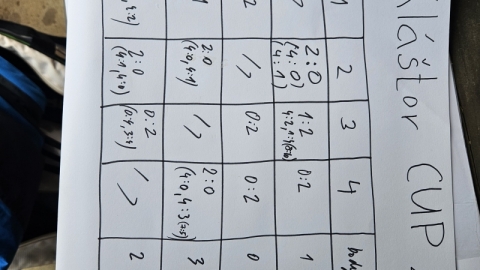 Kláštor CUP
1 2 3 4 body
2:0 1:2 0:2 1
(4:0)
(4:1)
2 0:2 0:2 0
1 2:0 2:0 3
(4:0, 4:1) (4:0, 4:3
2:0 0:2 2
(4:1, 4:0) (0:4, 3:4)